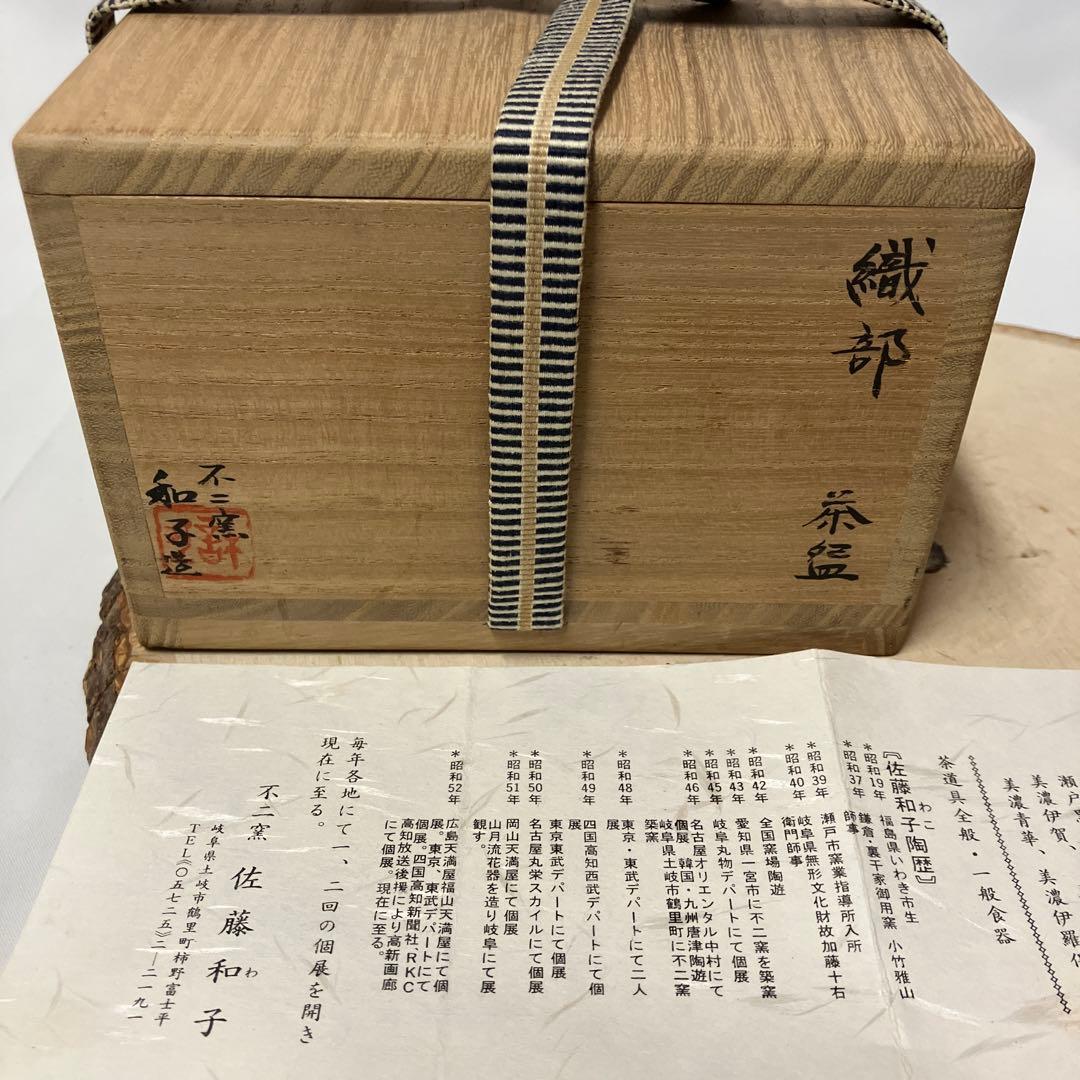 織部
茶盌
不二窯
和子造
瀬戸
美濃伊賀、美濃伊羅保
美濃青華、
茶道具全般・一般食器
『佐藤和子陶歴』
わこ
*昭和19年 福島県いわき市生
*昭和37年 鎌倉・裏千家御用窯 小竹雅山
師事
*昭和39年 瀬戸市窯業指導所入所
*昭和40年 岐阜県無形文化財故加藤十右
衛門師事
*昭和42年 全国窯場陶遊
*昭和43年 愛知県一宮市に不二窯を築窯
*昭和45年 岐阜丸物デパートにて個展
*昭和46年 名古屋オリエンタル中村にて
個展 韓国・九州唐津陶遊
岐阜県土岐市鶴里町に不二窯
築窯
*昭和48年 東京・東武デパートにて二人
展
*昭和49年 四国高知西武デパートにて個
展
*昭和50年 東京東武デパートにて個展
名古屋丸栄スカイルにて個展
*昭和51年 岡山天満屋にて個展
山月流花器を造り岐阜にて展
観す。
*昭和52年 広島天満屋福山天満屋にて個
展。東京、東武デパートにて
個展。四国高知新聞社、RKC
高知放送後援により高新画廊
にて個展。現在に至る。
毎年各地にて一、二回の個展を開き
現在に至る。
不二窯 佐藤和子
わ
岐阜県土岐市鶴里町柿野富士平
TEL《〇五七二五》二―二一九一